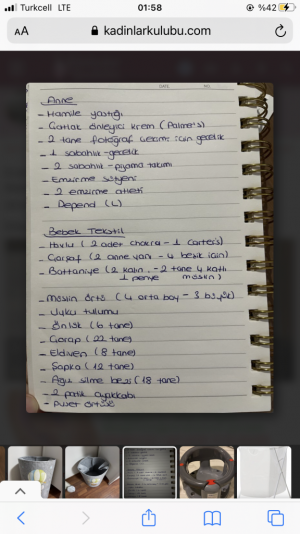 Turkcell LTE
01:58
%42
AA
kadinlarkulubu.com
DATE
Anne
- Hamile yastığı
- Çatlak önleyici krem (Palmer's)
- 2 tane fotoğraf çekimi için gecelik
- 1 sabahlık-gecelik
- 2 sabahlık-pijama takımı
- Emzirme sütyeni
- 2 emzirme atleti
- Depend (L)
Bebek Tekstil
- Havlu (2 adet chakra - 1 Carter's)
- Çarşaf (2 anne yanı - 4 beşik için)
- Battaniye (2 kalın - 2 tane 4 katlı
1 penye müslin)
- Müslin örtü (4 orta boy - 3 büyük)
- Uyku tulumu
- Önlük (6 tane)
- Çorap (22 tane)
- Eldiven (8 tane)
- Şapka (12 tane)
- Ağız silme bezi (18 tane)
- 2 patik ayakkabı
- Puset örtüsü